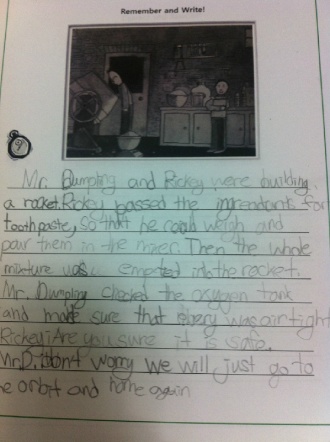 Remember and Write!
Mr. Dumpling and Rickey were building
a rocket. Rickey passed the ingredients for
toothpaste, so that he could weigh and
pair them in the mixer. Then the whole
mixture was emptied into the rocket.
Mr. Dumpling checked the oxygen tank
and made sure that was airtight
Rickey: Are you sure it is safe.
Mr.D: Don't worry we will just go to
he orbit and home again